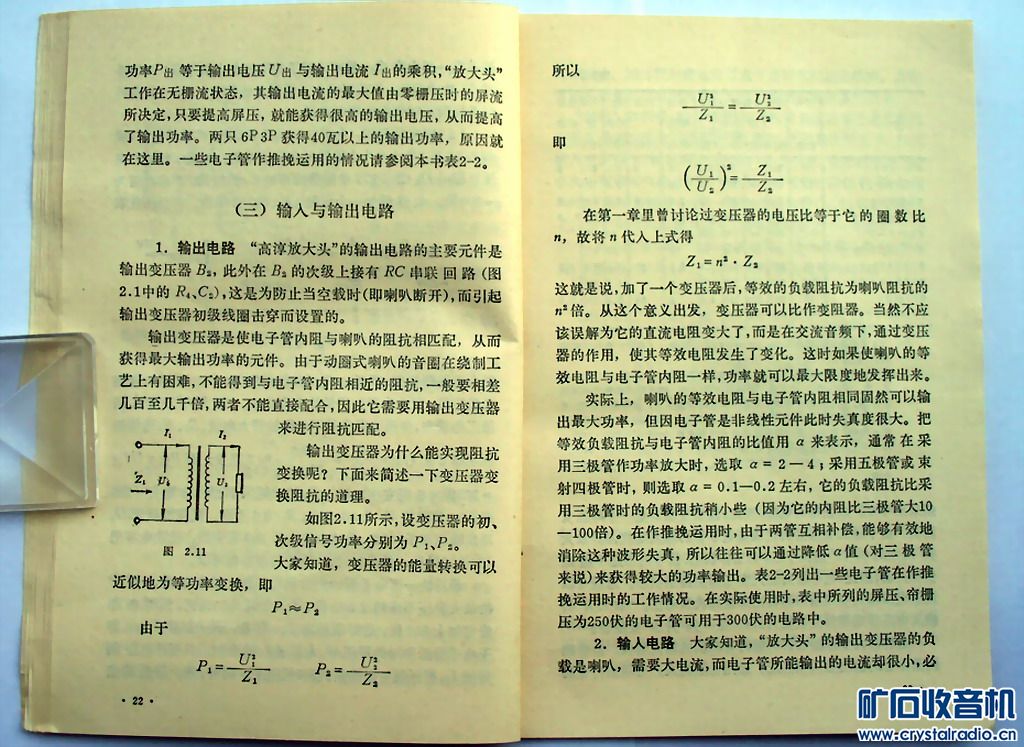 功率P出 等于输出电压U出 与输出电流 I出的乘积，“放大头”
工作在无栅流状态，其输出电流的最大值由零栅压时的屏流
所决定，只要提高屏压，就能获得很高的输出电压，从而提高
了输出功率。两只 6P3P 获得40瓦以上的输出功率，原因就
在这里。一些电子管作推挽运用的情况请参阅本书表2-2。
（三）输入与输出电路
1．输出电路 “高淳放大头”的输出电路的主要元件是
输出变压器 B₂，此外在 B₂ 的次级上接有 RC 串联回路（图
2.1中的 R₄、C₂），这是为防止当空载时（即喇叭断开），而引起
输出变压器初级线圈击穿而设置的。
输出变压器是使电子管内阻与喇叭的阻抗相匹配，从而
获得最大输出功率的元件。由于动圈式喇叭的音圈在绕制工
艺上有困难，不能得到与电子管内阻相近的阻抗，一般要相差
几百至几千倍，两者不能直接配合，因此它需要用输出变压器
来进行阻抗匹配。
输出变压器为什么能实现阻抗
变换呢？下面来简述一下变压器变
换阻抗的道理。
如图2.11所示，设变压器的初、
次级信号功率分别为 P₁、P₂。
大家知道，变压器的能量转换可以
I₁ I₂
Z₁ U₁ U₂
图 2.11
近似地为等功率变换，即
P₁≈P₂
由于
P₁=U₁²/Z₁ P₂=U₂²/Z₂
·22·
所以
U₁²/Z₁=U₂²/Z₂
即
(U₁/U₂)²=Z₁/Z₂
在第一章里曾讨论过变压器的电压比等于它的圈数比
n，故将 n 代入上式得
Z₁=n²·Z₂
这就是说，加了一个变压器后，等效的负载阻抗为喇叭阻抗的
n²倍。从这个意义出发，变压器可以比作变阻器。当然不应
该误解为它的直流电阻变大了，而是在交流音频下，通过变压
器的作用，使其等效电阻发生了变化。这时如果使喇叭的等
效电阻与电子管内阻一样，功率就可以最大限度地发挥出来。
实际上，喇叭的等效电阻与电子管内阻相同固然可以输
出最大功率，但因电子管是非线性元件此时失真度很大。把
等效负载阻抗与电子管内阻的比值用 α 来表示，通常在采
用三极管作功率放大时，选取 α＝2—4；采用五极管或束
射四极管时，则选取 α＝0.1—0.2左右，它的负载阻抗比采
用三极管时的负载阻抗稍小些（因为它的内阻比三极管大10
—100倍）。在作推挽运用时，由于两管互相补偿，能够有效地
消除这种波形失真，所以往往可以通过降低 α 值（对三极管
来说）来获得较大的功率输出。表2-2列出一些电子管在作推
挽运用时的工作情况。在实际使用时，表中所列的屏压、帘栅
压为250伏的电子管可用于300伏的电路中。
2．输入电路 大家知道，“放大头”的输出变压器的负
载是喇叭，需要大电流，而电子管所能输出的电流却很小，必
矿石收音机
www.crystalradio.cn